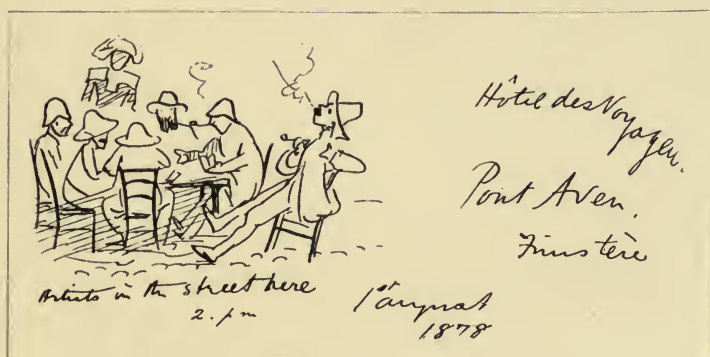 Hôtel des Voyageu.
Pont Aven.
Finistère
Artists in the street here
2. pm
1st august
1878